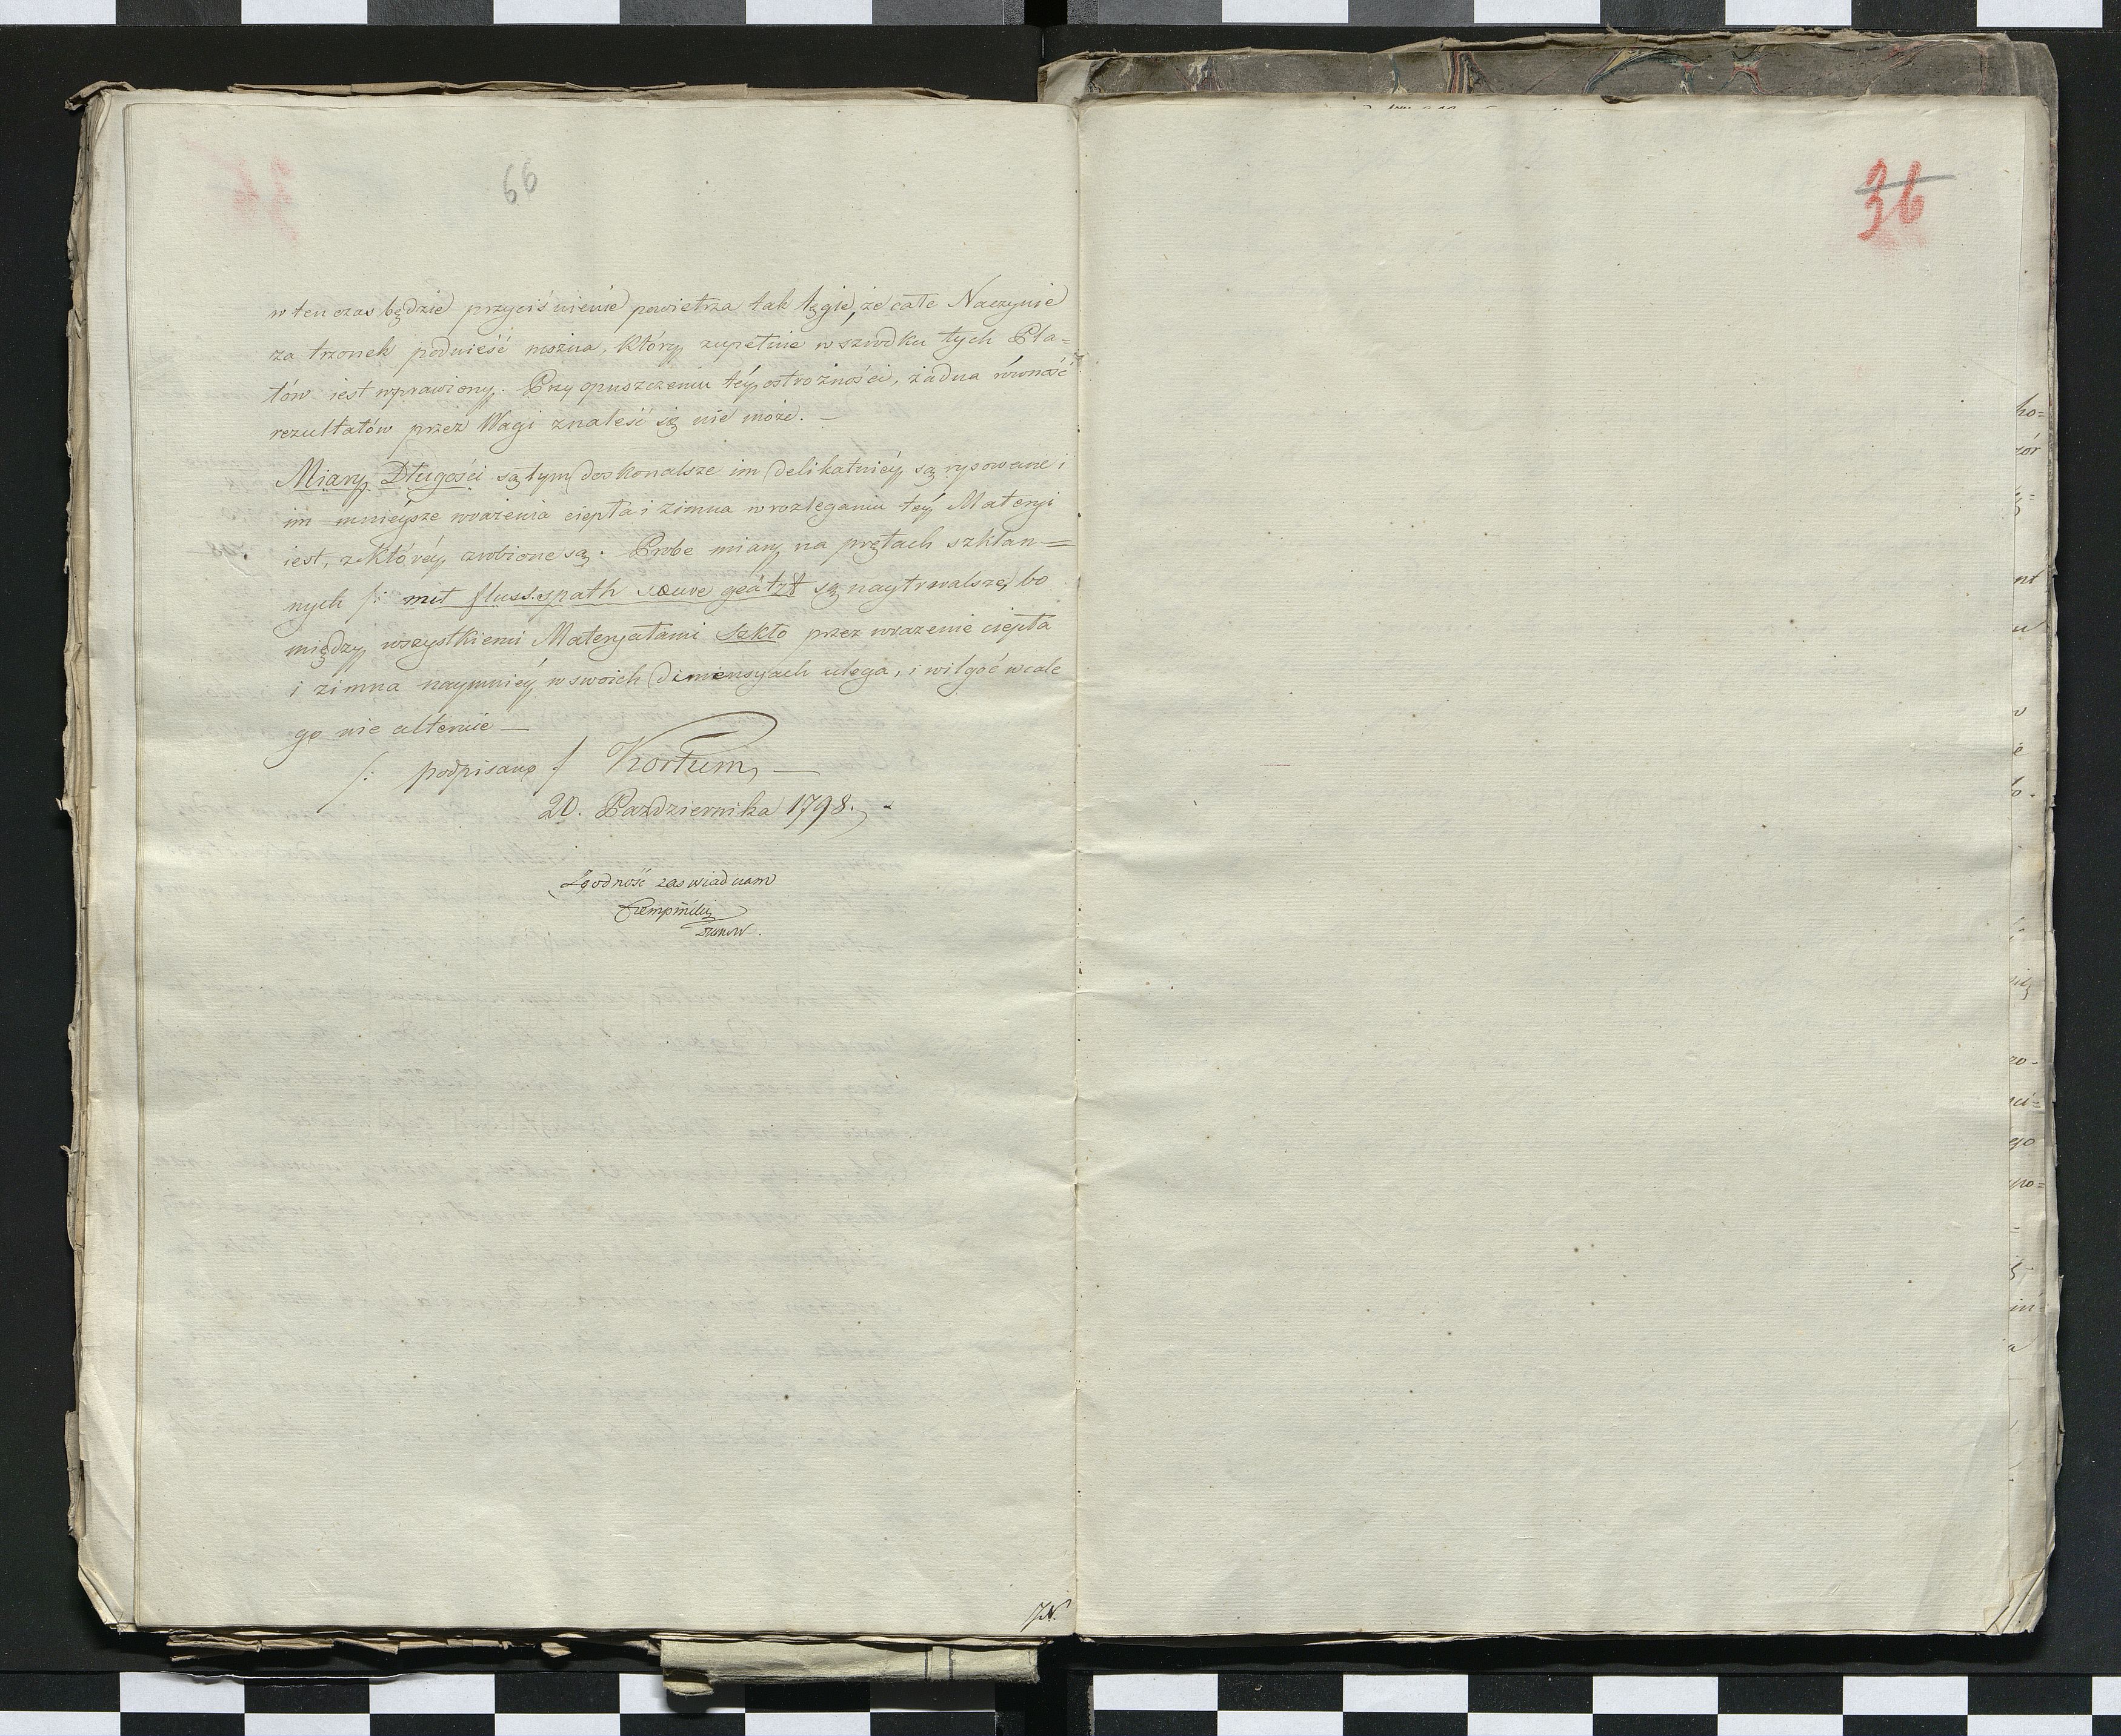 66
w ten czas będzie przyciśnienie powietrza tak tęgie, że całe Naczynie
za trzonek podnieść można, który zupełnie w szrodku tych Pla=
tów iest wprawiony. Przy opuszczeniu téy ostrożności, żadna równość
rezultatów przez Wagi znaleść się nie może. —
Miary Długości są tym doskonalsze im delikatniéy są rysowane i
im mnieysze wrażenia ciepła i zimna w rozleganiu téy Materyi
iest, z któréy zrobione są. Probe miary na prętach szklan=
nych /: mit flussspath saure geätzt są naytrwalsze, bo
między wszystkiemi Materyałami Szkło przez wrazenie ciepła
i zimna naymniéy w swoich dimensyach ulega, i wilgoć wcale
go nie alteruie —
/: podpisano :/ Kortum, —
20. Pazdziernika 1798.
Zgodność zaswiadczam
36